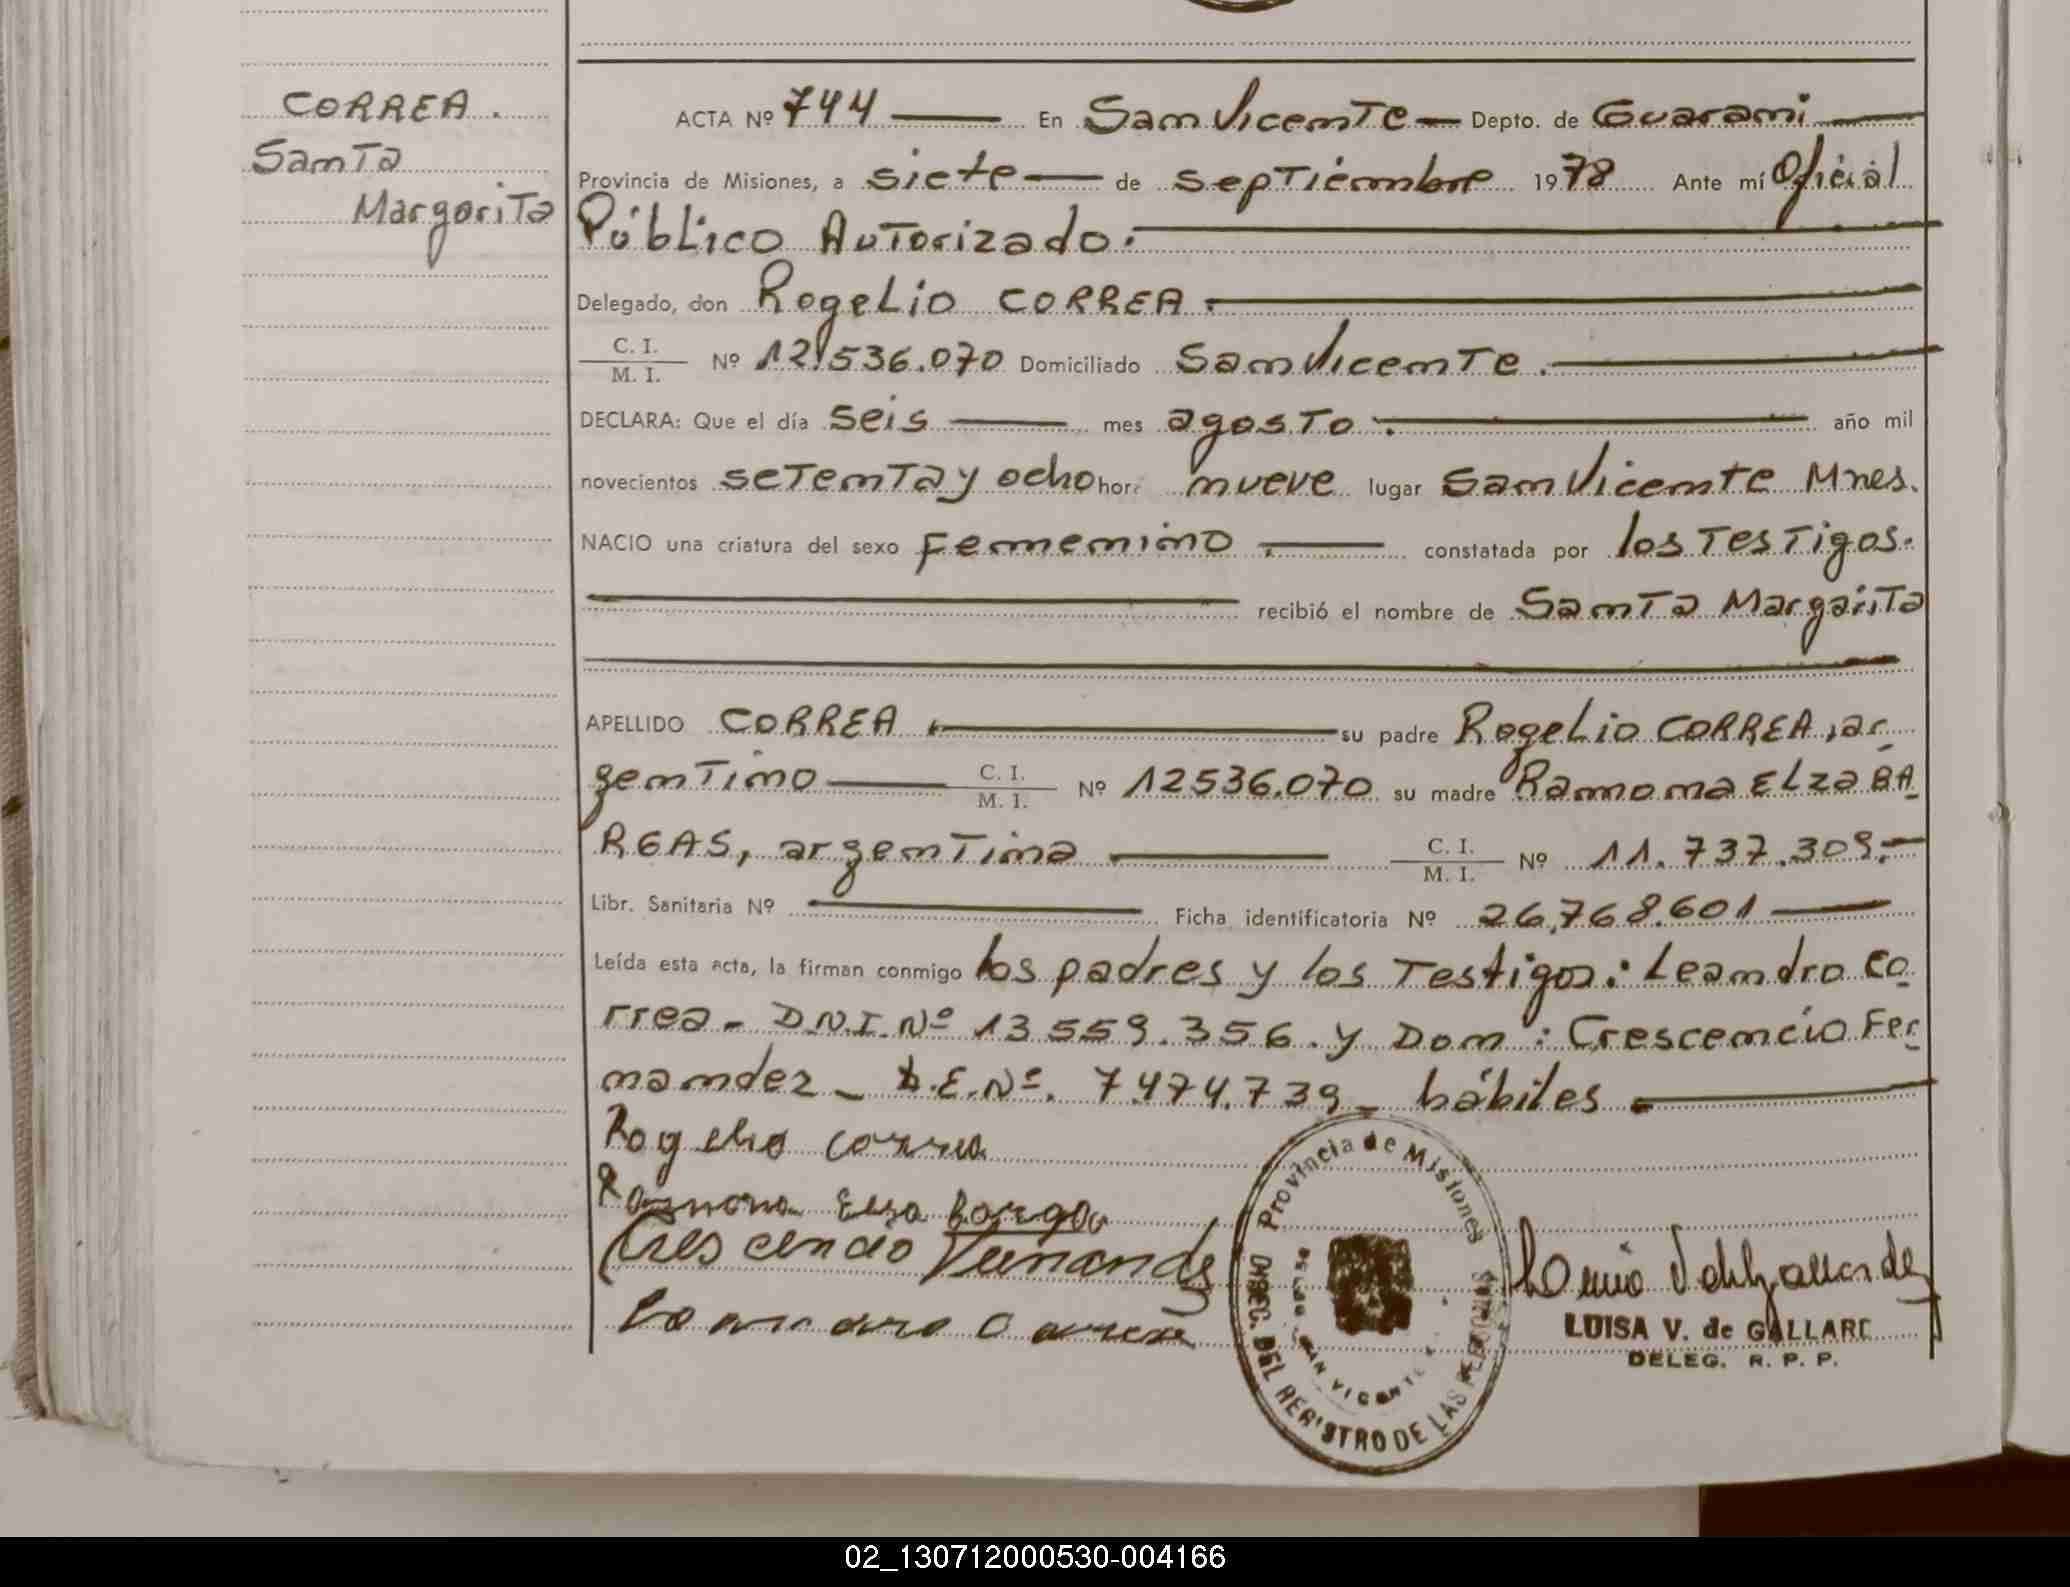 CORREA.
Santa
Margarita
ACTA Nº 744 En San Vicente Depto. de Guarani
Provincia de Misiones, a siete de septiembre 1978 Ante mí Oficial
Público Autorizado.
Delegado, don Rogelio CORREA.
C. I. / M. I. Nº 12.536.070 Domiciliado San Vicente.
DECLARA: Que el día seis mes agosto. año mil
novecientos setenta y ocho hora nueve lugar San Vicente Mnes.
NACIO una criatura del sexo femenino. constatada por los testigos.
recibió el nombre de Santa Margarita
APELLIDO CORREA. su padre Rogelio CORREA, ar-
gentino C. I. / M. I. Nº 12536.070 su madre Ramona Elza BA-
RGAS, argentina C. I. / M. I. Nº 11.737.309.-
Libr. Sanitaria Nº Ficha identificatoria Nº 26.768.601
Leída esta acta, la firman conmigo los padres y los testigos: Leandro Co-
rrea- D.N.I. Nº 13559.356. y Don: Crescencio Fer-
nandez- L.E. Nº. 7.474.739- hábiles
Rogelio Correa
Ramona Elsa Bargas
Crescencio Fernandez
Leandro Correa
Provincia de Misiones
DIREC. DEL REGISTRO DE LAS PERSONAS
SAN VICENTE
LUISA V. de GALLARD
DELEG. R. P. P.
02_130712000530-004166